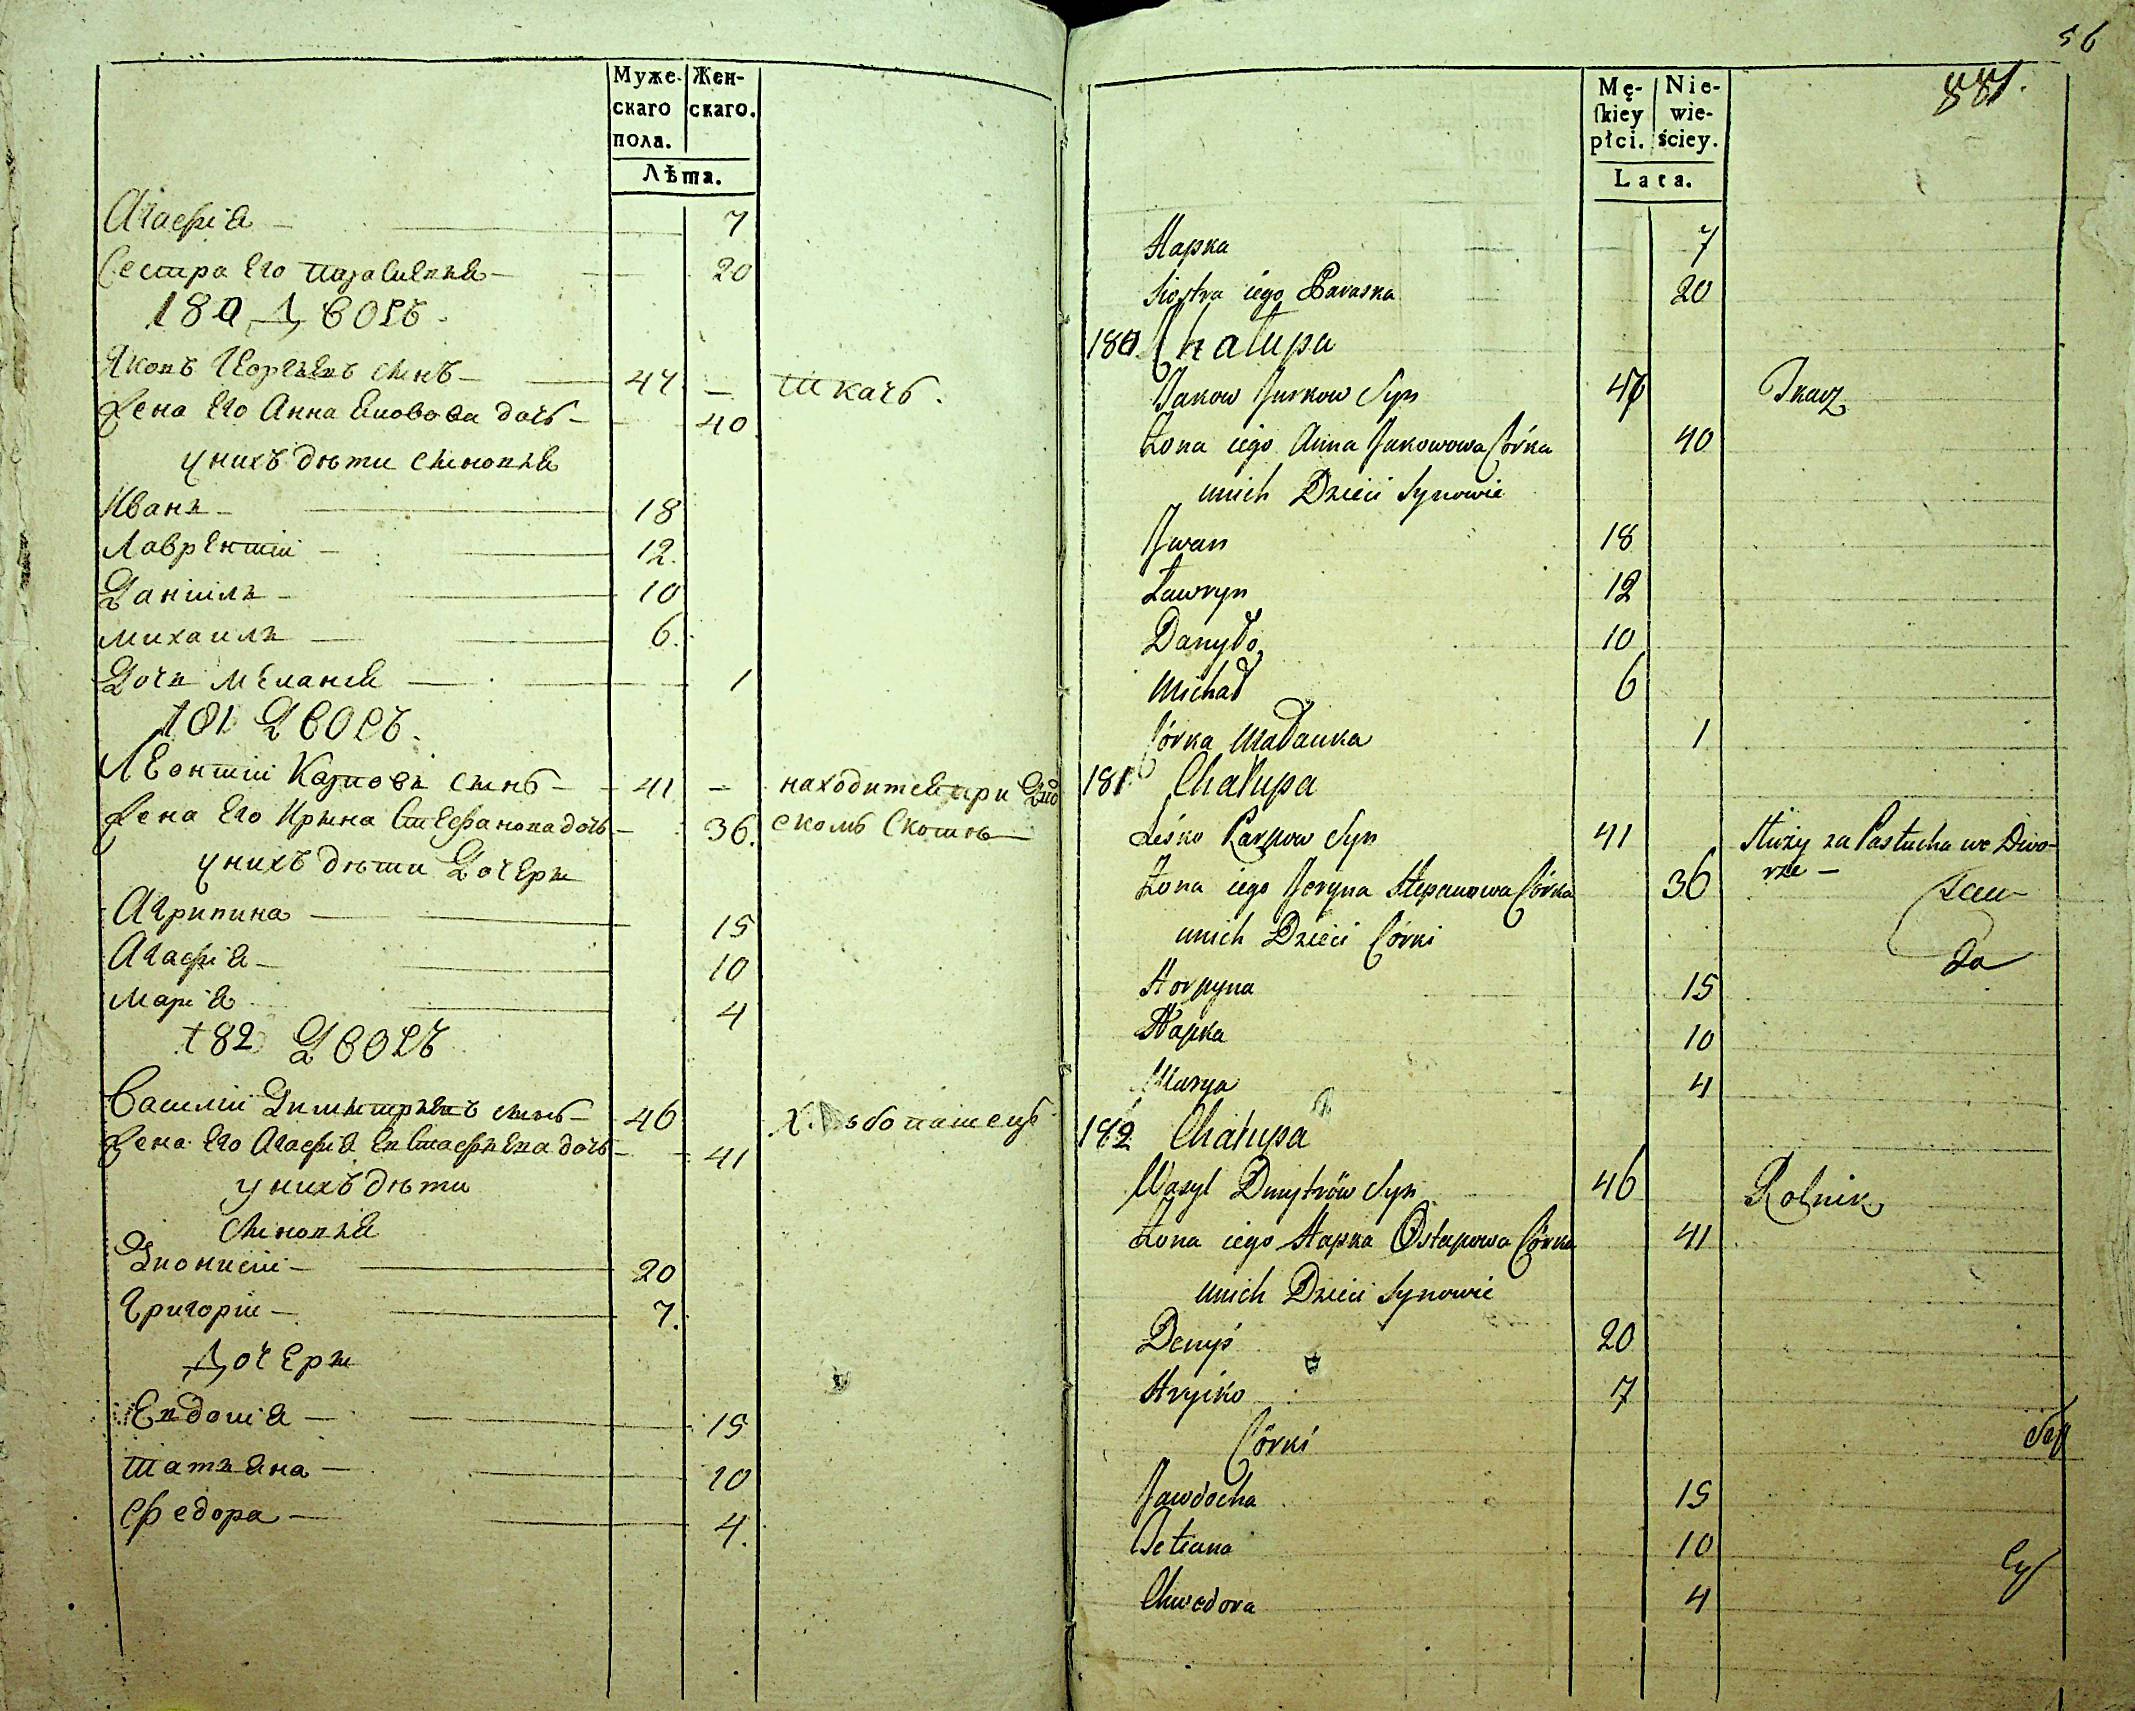 Муже-
скаго
пола.
Жен-
скаго.
Лѣта.
Агафія — 7
Сестра Его Параскевія — 20
180 Дворъ.
Яковъ Георгіевъ сынъ — 47 — ткачъ.
Жена Его Анна Яковова дочь — 40
у нихъ дѣти сыновья
Иванъ — 18
Лаврентій — 12.
Даніилъ — 10
Михаилъ — 6.
Дочь Меланія — 1
181 Дворъ.
Леонтій Карповъ сынъ — 41 — находится при Дво
Жена Его Ирина Стефанова дочь — 36. скомъ Скотѣ —
у нихъ дѣти Дочери
Агрипина — 15
Агафія — 10
Марія 4
182 Дворъ
Василій Димитріевъ сынъ — 46 Хлѣбопашецъ
Жена Его Агафія Евстафіева дочь — 41
у нихъ дѣти
Сыновья
Дионисій — 20
Григорій — 7.
Дочери
Евдокія — 15
Татьяна — 10
Федора — 4.
56
881.
Mę-
ſkiey
płci.
Nie-
wie-
ściey.
Lata.
Hapka 7
Siostra iego Paraska 20
180 Chałupa
Jakow Jurkow Syn 47 Tkacz
Żona iego Anna Jakowowa Córka 40
unich Dzieci Synowie
Jwan 18
Ławryn 12
Danyło 10
Michał 6
Córka Małanka 1
181 Chałupa
Leśko Karpow Syn 41 Służy za Pastucha we Dwo-
Żona iego Jeryna Stepanowa Córka 36 rze —
unich Dzieci Córki
Horpyna 15
Hapka 10
Marya 4
182 Chałupa
Wasyl Dmytrów Syn 46 Rolnik
Żona iego Hapka Ostapowa Córka 41
unich Dzieci Synowie
Demyś 20
Hryćko 7
Córki
Jawdocha 15
Tetiana 10
Chwedora 4